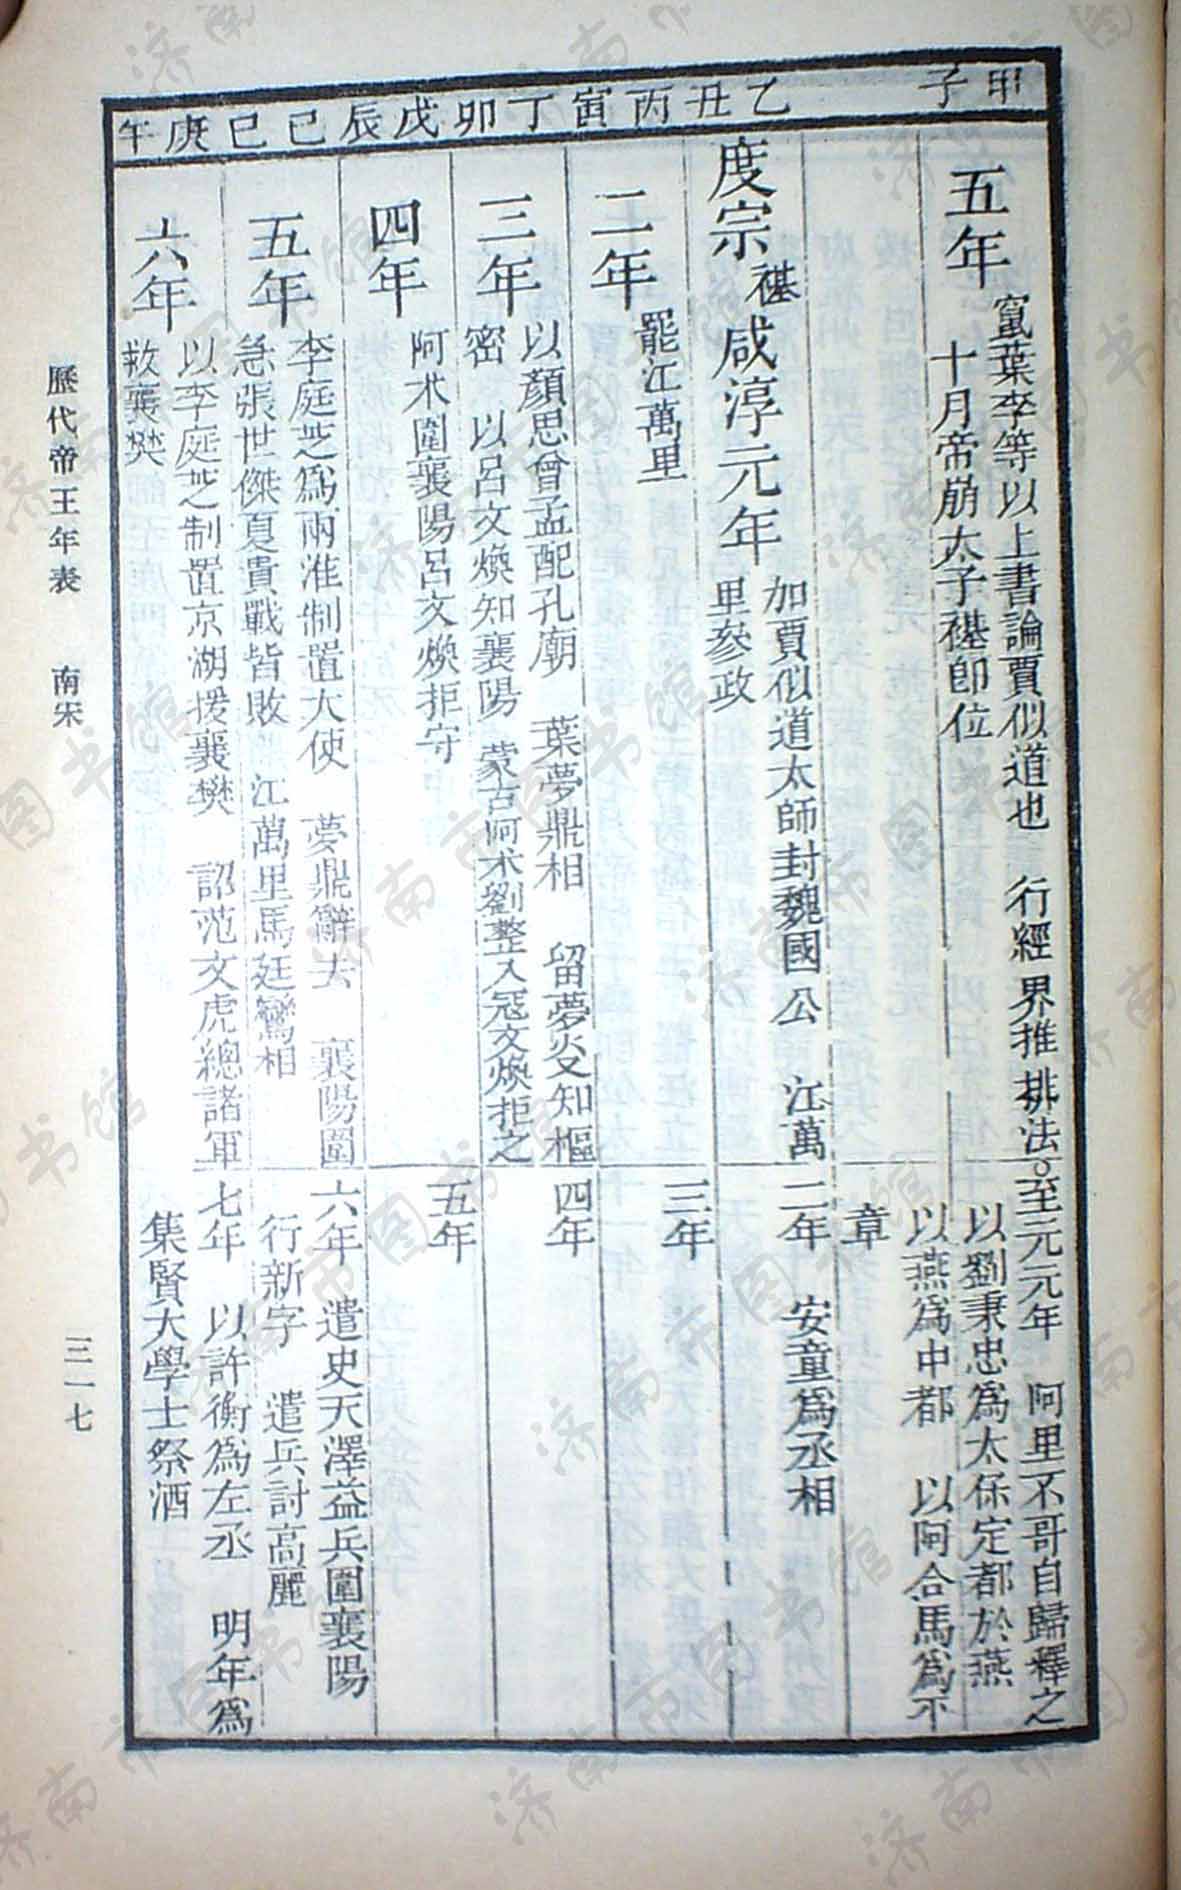 甲子
五年
竄葉李等以上書論賈似道也　行經界推排法○至元元年　阿里不哥自歸釋之
十月帝崩太子禥卽位
以劉秉忠爲太保定都於燕
以燕爲中都　以阿合馬爲平
章
乙丑
度宗禥咸淳元年
加賈似道太師封魏國公　江萬
里參政
二年　安童爲丞相
丙寅
二年
罷江萬里
三年
丁卯
三年
以顏思曾孟配孔廟　葉夢鼎相　留夢炎知樞
密　以呂文煥知襄陽　蒙古阿朮劉整入寇文煥拒之
四年
戊辰
四年
阿朮圍襄陽呂文煥拒守
五年
己巳
五年
李庭芝爲兩淮制置大使　夢鼎辭去　襄陽圍
急張世傑夏貴戰皆敗　江萬里馬廷鸞相
六年　遣史天澤益兵圍襄陽
行新字　遣兵討高麗
庚午
六年
以李庭芝制置京湖援襄樊　詔范文虎總諸軍
救襄樊
七年　以許衡爲左丞　明年爲
集賢大學士祭酒
歷代帝王年表　南宋
三一七
济南市图书馆